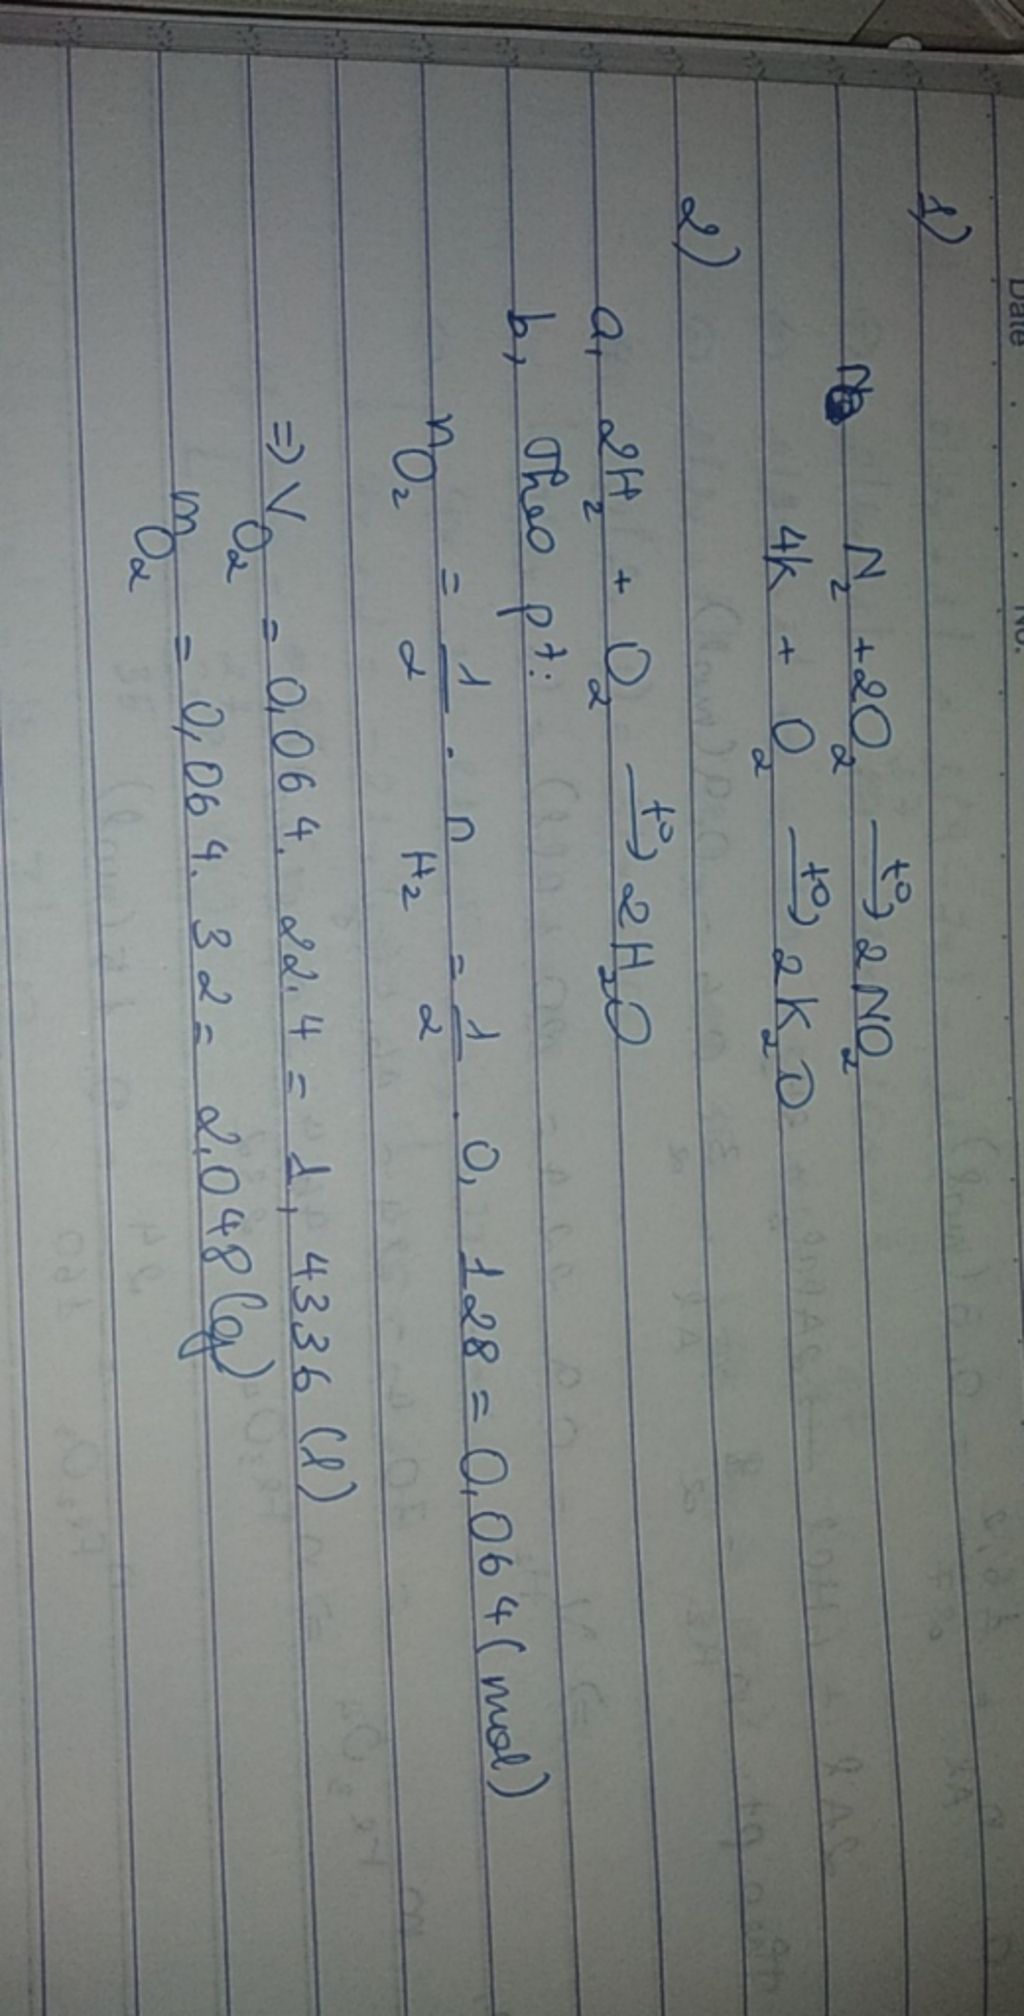 Date No.
1)
N₂ + 2O₂ —t°→ 2NO₂
4K + O₂ —t°→ 2K₂O
2)
a, 2H₂ + O₂ —t°→ 2H₂O
b, Theo pt:
nO₂ = 1/2 . nH₂ = 1/2 . 0,128 = 0,064 (mol)
=> VO₂ = 0,064. 22.4 = 1,4336 (l)
mO₂ = 0,064. 32 = 2,048 (g)